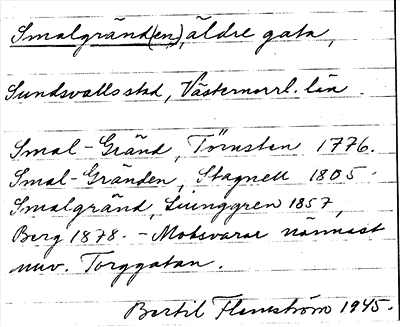 Smalgränd(en), äldre gata,
Sundsvalls stad, Västernorrl. län.
Smal-Gränd, Törnsten 1776.
Smal-Gränden, Stagnell 1805.
Smalgränd, Ljunggren 1857,
Berg 1878. - Motsvarar närmast
nuv. Torggatan.
Bertil Flemström 1945.